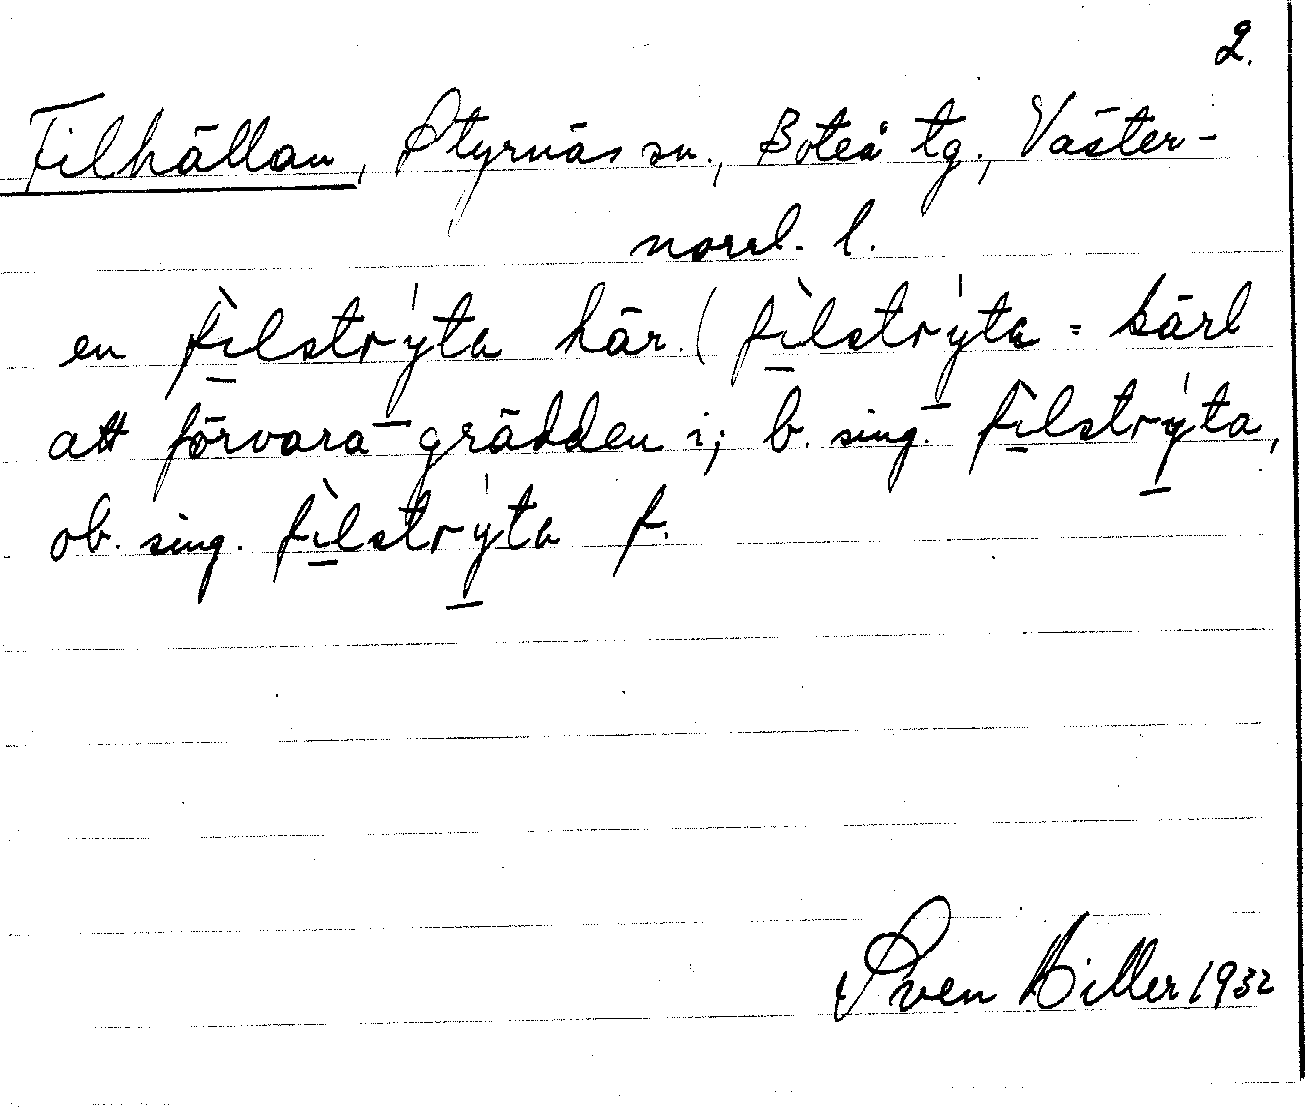 2.
Filhällan, Styrnäs sn., Boteå tg., Väster-
norrl. l.
en fìlstrýta här. (fìlstrýta = kärl
att förvara grädden i; b. sing. fìlstrýta,
ob. sing. fìlstrýta f.
Sven Hiller 1932